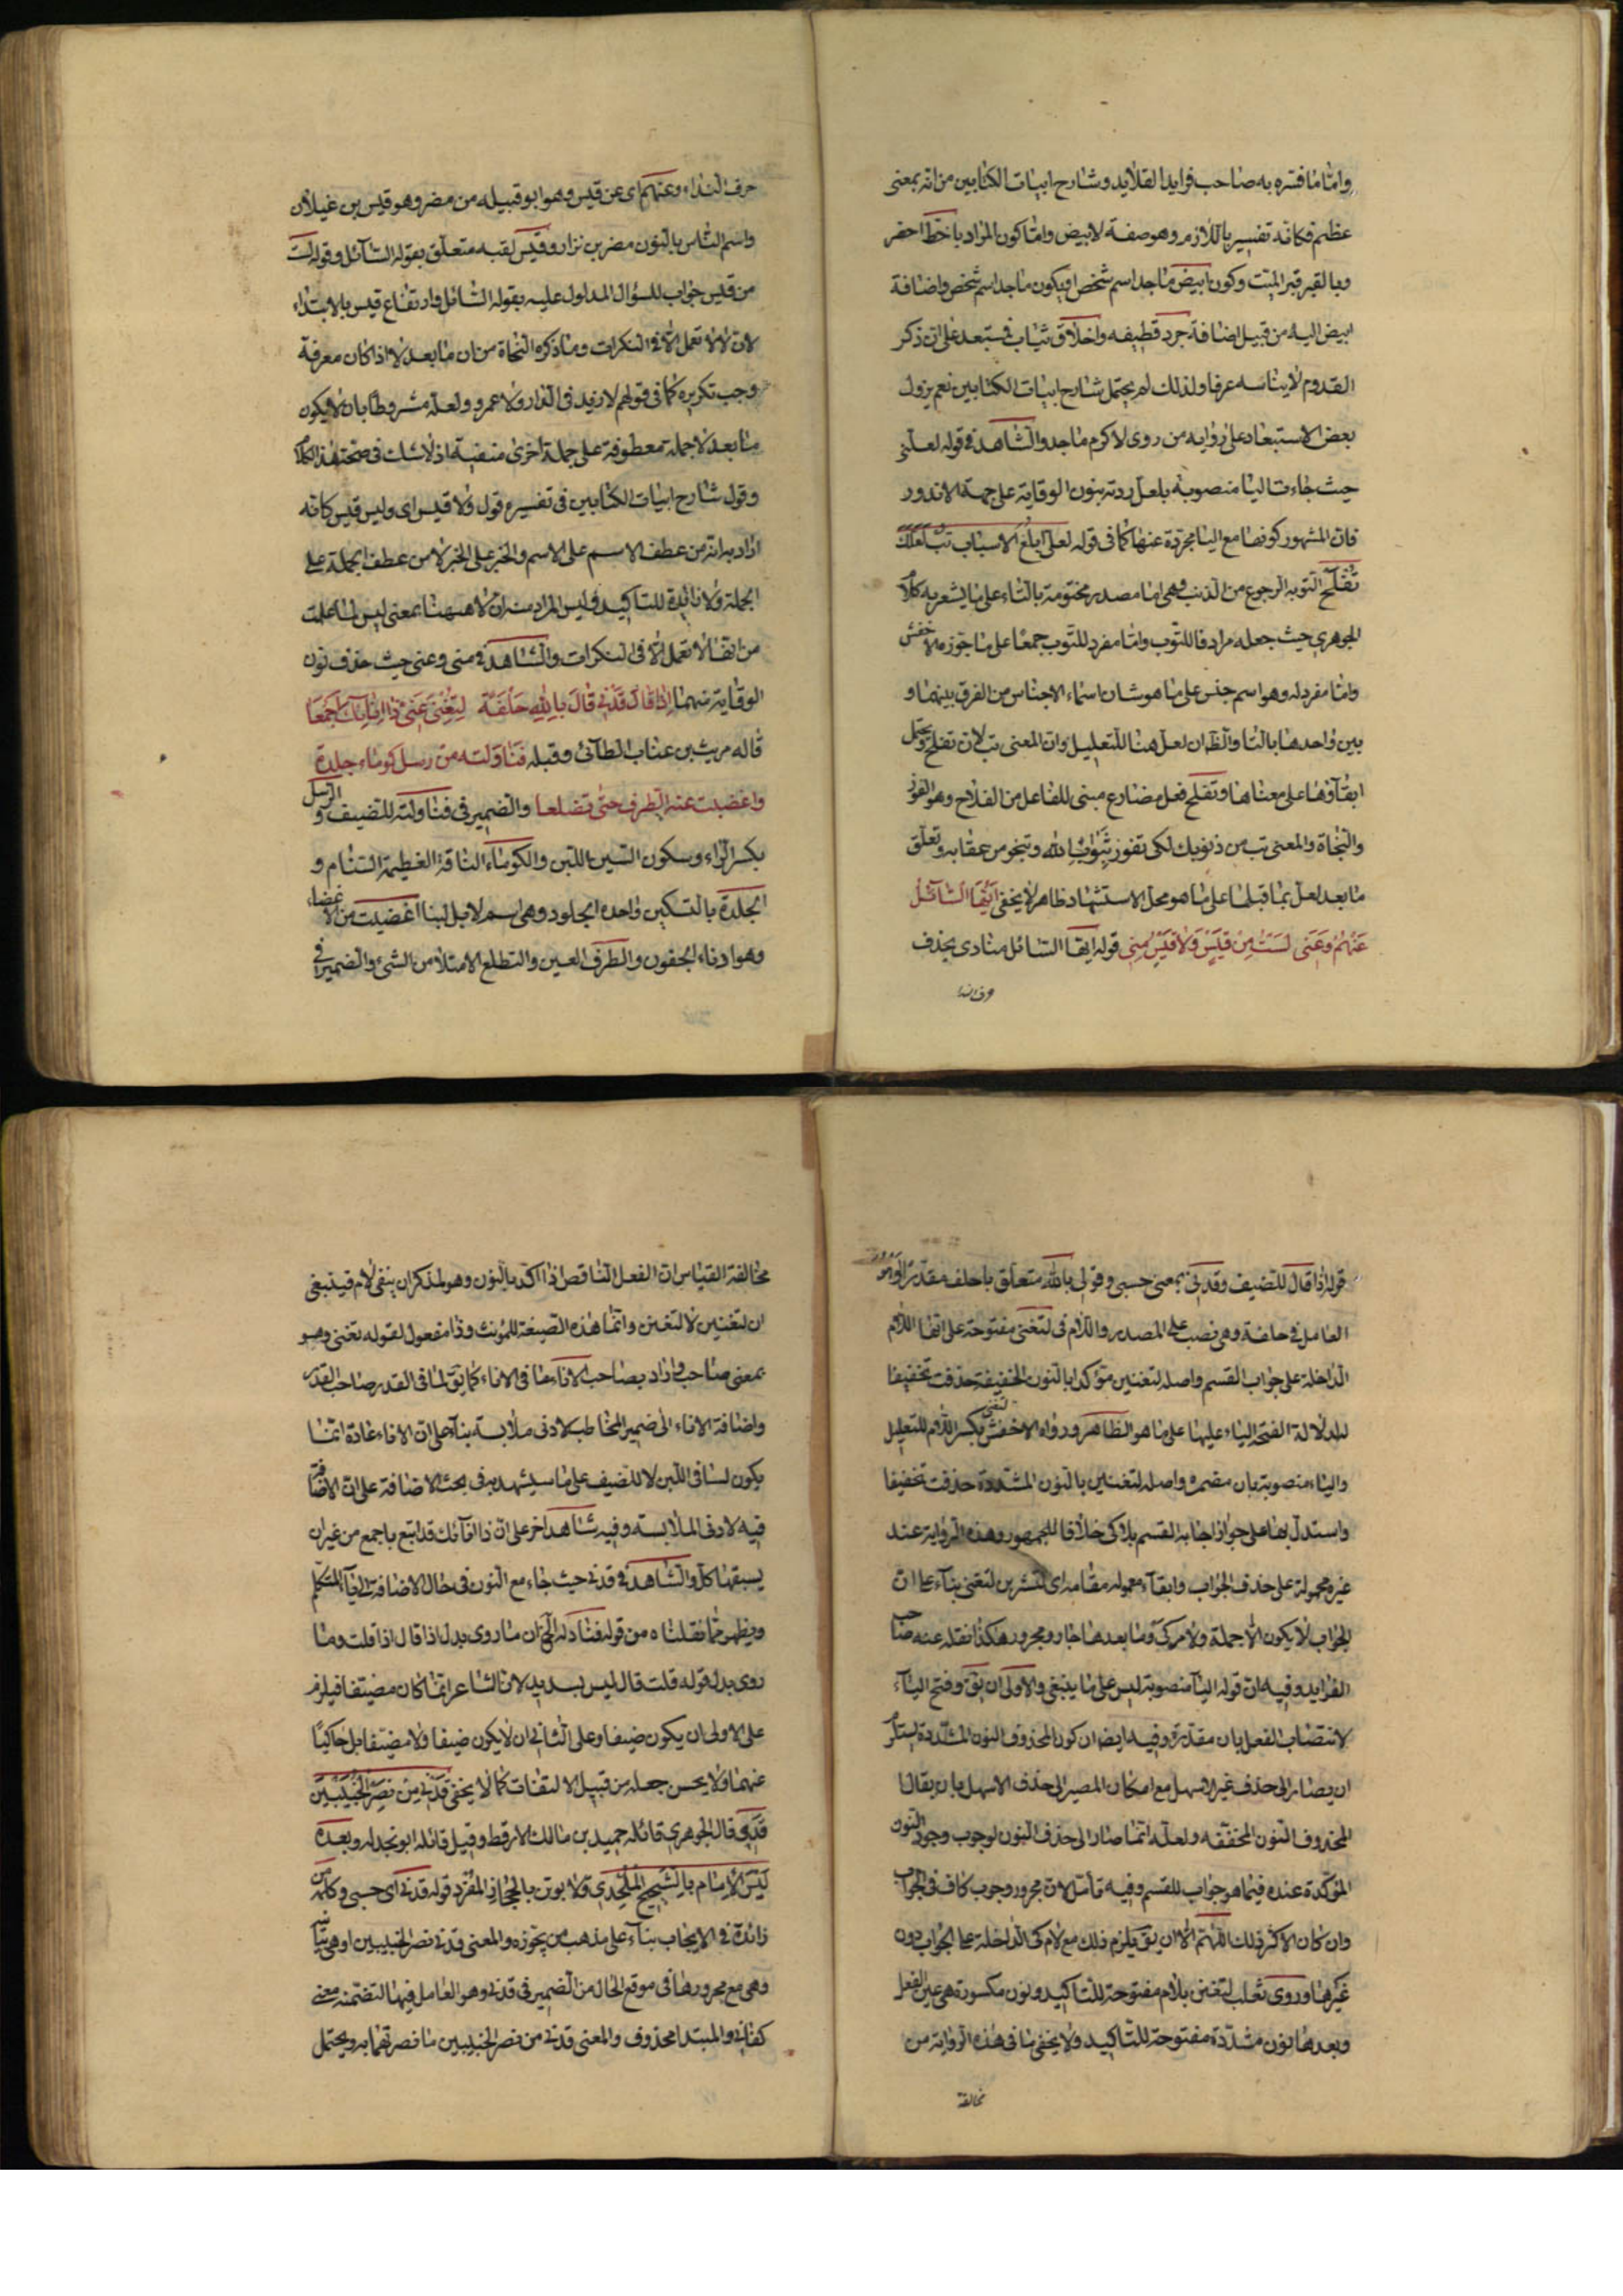 واما ما فسره به صاحب فرايد القلايد وشارح ابيات الكتابين من انه بمعنى
عظيم فكانه تفسير باللازم وهو صفة لابيض واما كون المراد باخط احفر
وبالقبر قبر الميت وكون ابيض ماجد اسم شخص او يكون ماجد اسم شخص واضافة
ابيض اليه من قبيل اضافة جرد قطيفه واخلاق ثياب فمستبعد على ان ذكر
القدوم لا يناسبه عرفا ولذلك لم يحتمل شارح ابيات الكتابين نعم يزول
بعض الاستبعاد على رواية من روى لاكرم ماجد والشاهد في قوله لعلني
حيث جاءت اليا منصوبة بلعل ردته بنون الوقاية على جهة الاندور
فان المشهور كونها مع اليا مجردة عنها كما في قوله لعلى ابلغ الاسباب تب لعلك
تفلح التوبه الرجوع من الذنب وهي اما مصدر مختومة بالتاء على ما يشعر به كلام
الجوهري حيث جعله مرادفا للتوب واما مفرد للتوب جمعا على ما جوزه الاخفش
واما مفرد له وهو اسم جنس على ما هو شان اسماء الاجناس من الفرق بينهما و
بين واحدها بالتا والظ ان لعل هنا للتعليل وان المعنى تب لان تفلح ويحتمل
ابقاؤها على معناها وتفلح فعل مضارع مبنى للفاعل من الفلاح وهو الفوز
والنجاة والمعنى تب من ذنوبك لكى تفوز بثواب الله وتنجو من عقابه وتعلق
ما بعد لعل بما قبلها على ما هو محل الاستشهاد ظاهر لا يخفى ايها السائل
عنهم وعنى لست من قيس ولا قيس منى قوله ايها السائل منادى بحذف
حرف الندا
حرف النداء وعنهم اى عن قيس وهو ابو قبيله من مضر وهو قيس بن غيلان
واسم الناس بالنون مضر بن نزار وقيس لقبه متعلق بقوله السائل وقوله لست
من قيس جواب للسؤال المدلول عليه بقوله السائل وارتفاع قيس بالابتداء
لان لا لا تعمل الا في النكرات وما ذكره النحاة من ان ما بعد لا اذا كان معرفة
وجب تكريره كما في قولهم لا زيد في الدار ولا عمرو ولعله مشروط بان لا يكون
ما بعد لا جملة معطوفة على جملة اخرى منفية اذ لا شك في صحة هذا الكلام
وقول شارح ابيات الكتابين في تفسيره قول ولا قيس اى وليس قيس كانه
اراد به انه من عطف الاسم على الاسم والخبر على الخبر لا من عطف الجملة على
الجملة ولا زائدة للتاكيد وليس المراد منه ان لا ههنا بمعنى ليس لما علمت
من انها لا تعمل الا في النكرات والشاهد في منى وعنى حيث حذف نون
الوقاية منهما اذا قال قدنى قال بالله حلفة لتغنى عنى ذا انائك اجمعا
قاله حريث بن عتاب الطائى وقبله فناولته من رسل كوماء جلدة
واغضيت عنه الطرف حتى تضلعا والضمير في فناولته للضيف والرسل
بكسر الراء وسكون السين اللبن والكوماء الناقة العظيمة السنام و
الجلدة بالتسكين واحدة الجلود وهي اسم لابل لبنا اغضيت من الاغضاء
وهو ادناء الجفون والطرف العين والتطلع الامتلاء من الشىء والضمير في
قوله اذا قال للضيف وقدنى بمعنى حسبي وقولى بالله متعلق باحلف مقدرا وهو
العامل في حلفة وهي نصب على المصدر واللام في لتغنى مفتوحة على انها اللام
الداخلة على جواب القسم واصله لتغنين مؤكدا بالنون الخفيفة حذفت تخفيفا
لدلالة الفتحة الياء عليها على ما هو الظاهر ورواه الاخفش لتغنى بكسر اللام للتعليل
والياء منصوبة بان مضمرة واصله لتغنين بالنون المشددة حذفت تخفيفا
واستدل بها على جواز اجابة القسم بلام كى خلافا للجمهور وهذه الرواية عند
غيره محمولة على حذف الجواب وابقاء معموله مقامه اى لتشربن لتغنى بناء على ان
الجواب لا يكون الا جملة ولام كى وما بعدها جار ومجرور هكذا نقله عنه صاحب
الفرايد وفيه ان قوله اليا منصوبة ليس على ما ينبغي والاولى ان يق وفتح الياء
لانتصاب الفعل بان مقدرة وفيه ايضا ان كون المحذوف النون المشددة يستلزم
ان يصار الى حذف غير الاسهل مع امكان المصير الى حذف الاسهل بان يقال ان
المحذوف النون المخففه ولعله انما صار الى حذف النون لوجوب وجود النون
المؤكدة عنده فيما هو جواب للقسم وفيه تامل لان مجرور وجوب كاف في الجواب
وان كان الاكثر ذلك اللهم الا ان يق يلزم ذلك مع لام كى الداخلة على الجواب دون
غيرها وروى ثعلب لتغنن بلام مفتوحة للتاكيد ونون مكسورة هي عين الفعل
وبعدها نون مشددة مفتوحة للتاكيد ولا يخفى ما في هذه الرواية من
مخالفة
مخالفة القياس ان الفعل الناقص اذا اكد بالنون وهو لمذكر ان يبقى لامه فينبغي
ان لتغنين لا لتغنن وانما هذه الصيغة للمؤنث وذا مفعول لقوله تغنى وهو
بمعنى صاحب واراد بصاحب الاناء ما في الاناء كما يق لما في القدر صاحب القدر
واضافة الاناء الى ضمير المخاطب لادنى ملابسة بناء على ان الاناء عادة انما
يكون لساقى اللبن لا للضيف على ما سيشهد به في بحث الاضافة على ان الاضافة
فيه لادنى الملابسة وفيه شاهد اخر على ان ذا انائك قد اتبع باجمع من غير ان
يسبقها كل والشاهد في قدنى حيث جاء مع النون في حال الاضافة الى ياء المتكلم
ويظهر مما نقلناه من قوله فناولته الخ ان ما روى بدل اذا قال اذا قلت وما
روى بدل قوله قلت قال ليس بسديد لان الشاعر انما كان مضيفا فيلزم
على الاولى ان يكون ضيفا وعلى الثانى ان لا يكون ضيفا ولا مضيفا بل حاكيا
عنهما ولا يحسن جعله من قبيل الالتفات كما لا يخفى قدنى من نصر الخبيبين
قدى قال الجوهري قائله حميد بن مالك الارقط وقيل قائله ابو نجدله وبعده
ليس الامام بالشحيح الملحد ولا بوتن بالحجاز المفرد قوله قدنى اى حسبي وكلمة من
زائدة في الايجاب بناء على مذهب من يجوزه والمعنى قدنى نصر الخبيبين او هي
وهي مع مجرورها في موقع الحال من الضمير في قدنى وهو العامل فيها لتضمنه معنى
كفانى والمبتدا محذوف والمعنى قدنى من نصر الخبيبين ما نصرتهما به ويحتمل